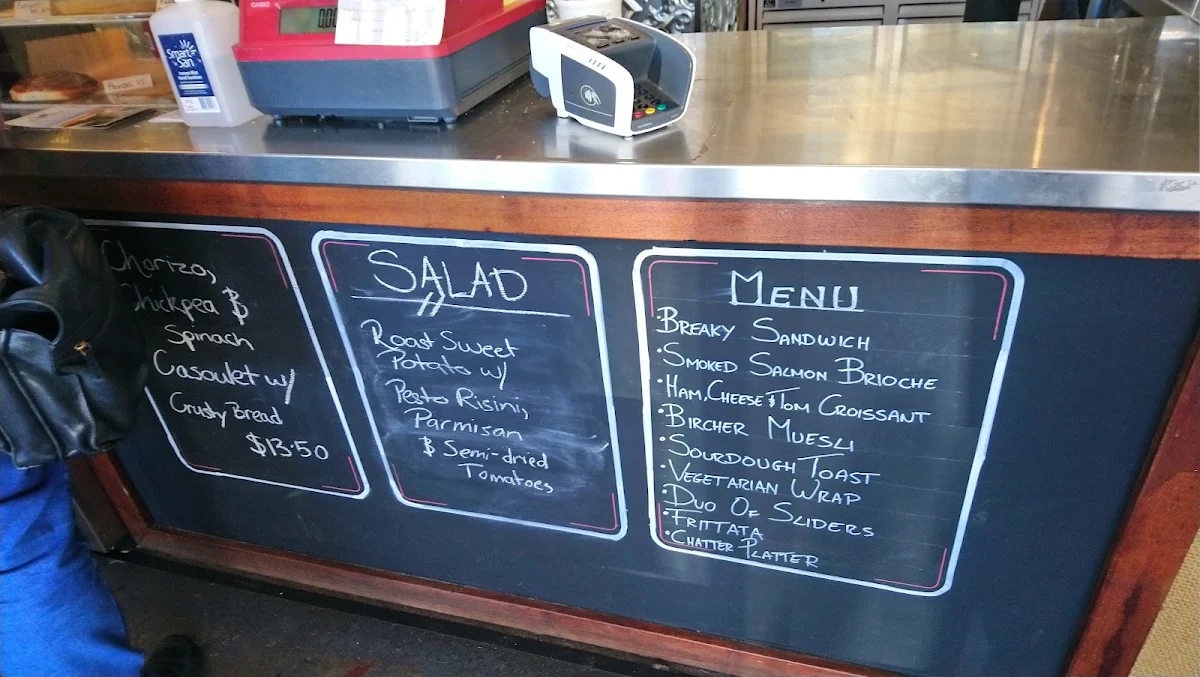 CASIO
Smart San
Chorizo,
Chickpea &
Spinach
Casoulet w/
Crusty Bread
$13.50
SALAD
Roast Sweet
Potato w/
Pesto Risini,
Parmisan
& Semi-dried
Tomatoes
MENU
BREAKY SANDWICH
•SMOKED SALMON BRIOCHE
•HAM, CHEESE & TOM CROISSANT
•BIRCHER MUESLI
•SOURDOUGH TOAST
•VEGETARIAN WRAP
•DUO OF SLIDERS
•FRITTATA
•CHATTER PLATTER